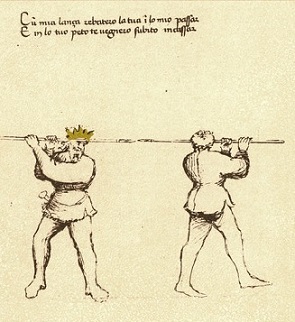 Cũ mia lança rebatero la tua ĩ lo mio passar
E in lo tuo peto te vegnero subito incassar